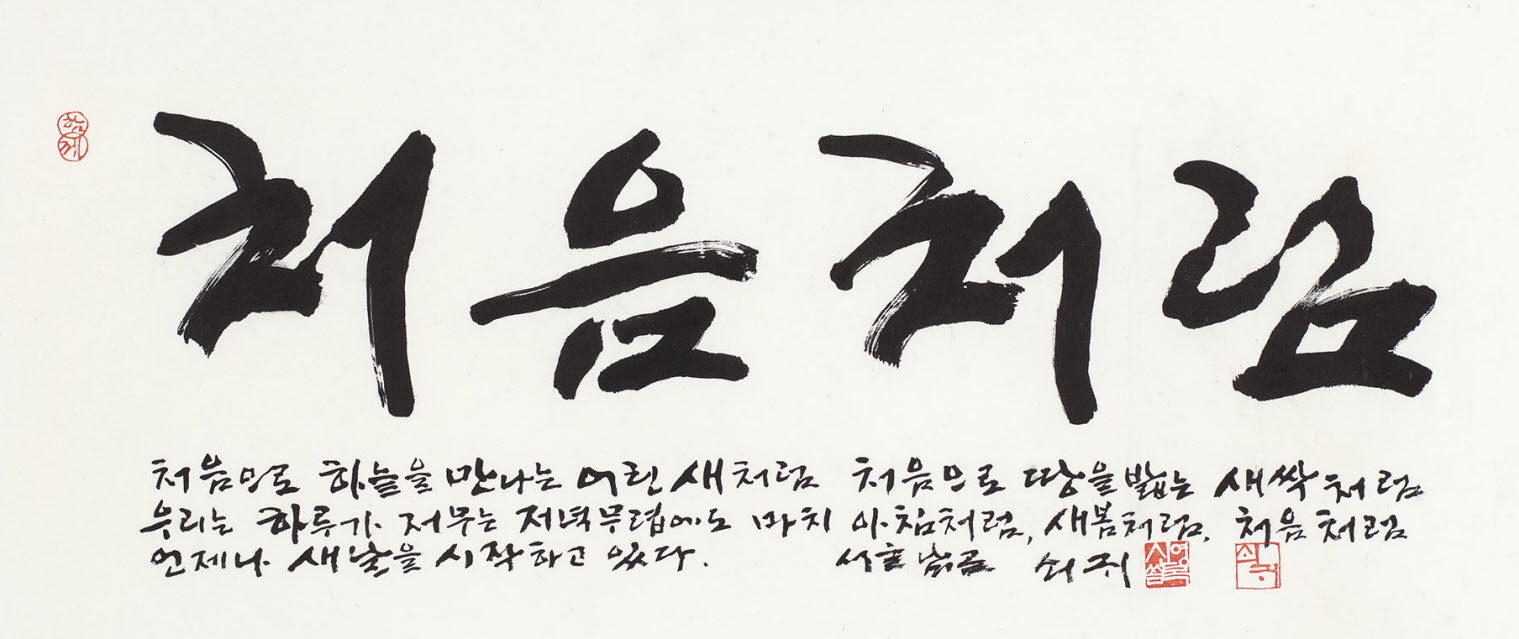 처음처럼
처음으로 하늘을 만나는 어린 새처럼 처음으로 땅을 밟는 새싹처럼
우리는 하루가 저무는 저녁무렵에도 마치 아침처럼, 새봄처럼, 처음처럼
언제나 새날을 시작하고 있다.
쇠귀
함께